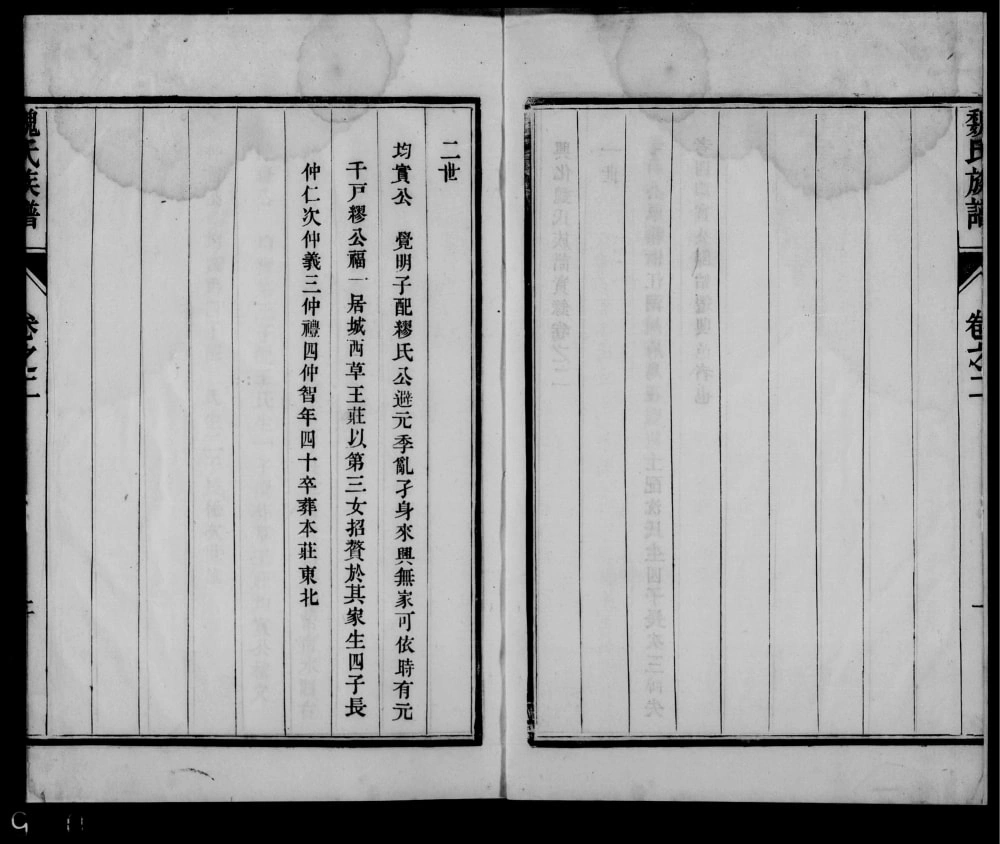 魏氏族譜 卷之二 一
二世
均實公 覺明子配繆氏公避元季亂孑身來興無家可依時有元
千戸繆公福一居城西草王莊以第三女招贅於其家生四子長
仲仁次仲義三仲禮四仲智年四十卒葬本莊東北
魏氏族譜 卷之二